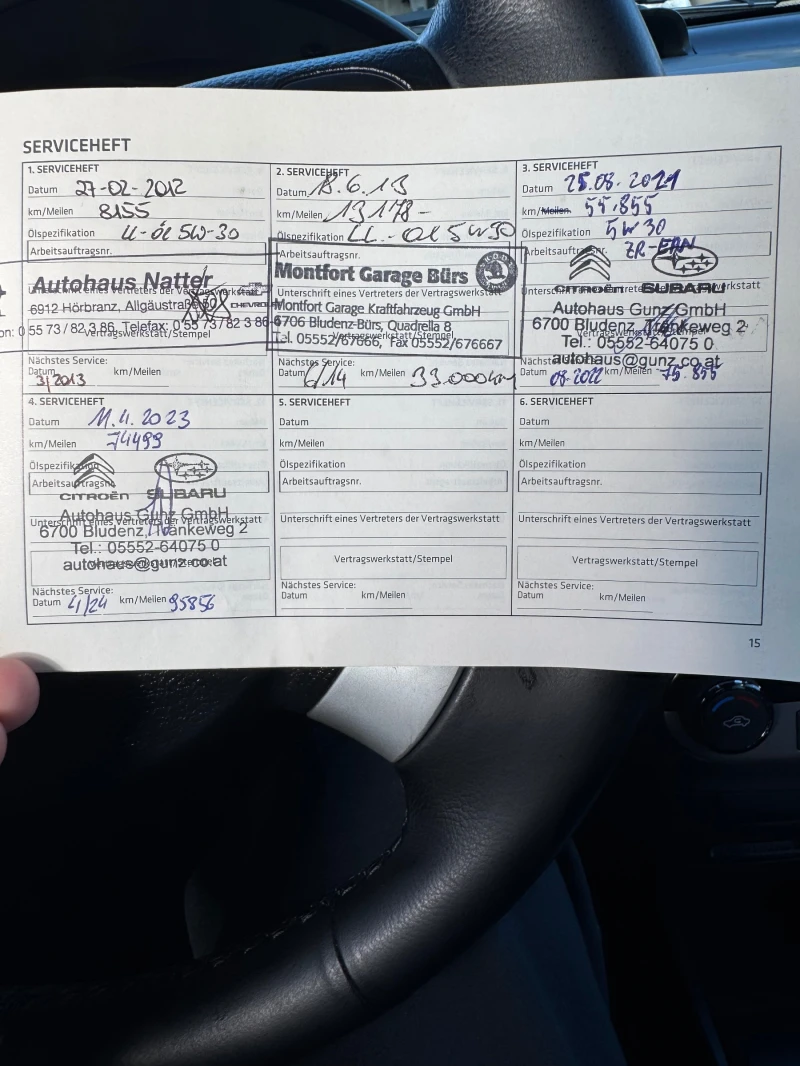 SERVICEHEFT
1. SERVICEHEFT
Datum 27-02-2012
km/Meilen 8155
Ölspezifikation LL-öl 5W-30
Arbeitsauftragsnr.
Autohaus Natter
Unterschrift eines Vertreters der Vertragswerkstatt
6912 Hörbranz, Allgäustraße
CHEVROLET
on: 0 55 73 / 82 3 86, Telefax: 0 55 73 / 82 3 86-6
Vertragswerkstatt/Stempel
Nächstes Service:
Datum km/Meilen
3/2013
2. SERVICEHEFT
Datum 18.6.13
km/Meilen 13178-
Ölspezifikation LL-Öl 5W30
Arbeitsauftragsnr.
Montfort Garage Bürs
SKODA
Unterschrift eines Vertreters der Vertragswerkstatt
Montfort Garage Kraftfahrzeug GmbH
6706 Bludenz-Bürs, Quadrella 8
Vertragswerkstatt/Stempel
Tel. 05552/67666, Fax 05552/676667
Nächstes Service:
Datum 6/14 km/Meilen 33.000km
3. SERVICEHEFT
Datum 25.08.2021
km/Meilen 55.855
Ölspezifikation 5W30
Arbeitsauftragsnr.
CITROËN SUBARU
Unterschrift eines Vertreters der Vertragswerkstatt
Autohaus Gunz GmbH
6700 Bludenz, Tränkeweg 2
Vertragswerkstatt/Stempel
Tel.: 05552-64075 0
Nächstes Service:
autohaus@gunz.co.at
Datum 08.2022 km/Meilen 75.855
4. SERVICEHEFT
Datum 11.4.2023
km/Meilen 74499
Ölspezifikation
Arbeitsauftragsnr.
CITROËN SUBARU
Autohaus Gunz GmbH
Unterschrift eines Vertreters der Vertragswerkstatt
6700 Bludenz, Tränkeweg 2
Tel.: 05552-64075 0
autohaus@gunz.co.at
Nächstes Service:
Datum 4/24 km/Meilen 95856
5. SERVICEHEFT
Datum
km/Meilen
Ölspezifikation
Arbeitsauftragsnr.
Unterschrift eines Vertreters der Vertragswerkstatt
Vertragswerkstatt/Stempel
Nächstes Service:
Datum km/Meilen
6. SERVICEHEFT
Datum
km/Meilen
Ölspezifikation
Arbeitsauftragsnr.
Unterschrift eines Vertreters der Vertragswerkstatt
Vertragswerkstatt/Stempel
Nächstes Service:
Datum km/Meilen
15